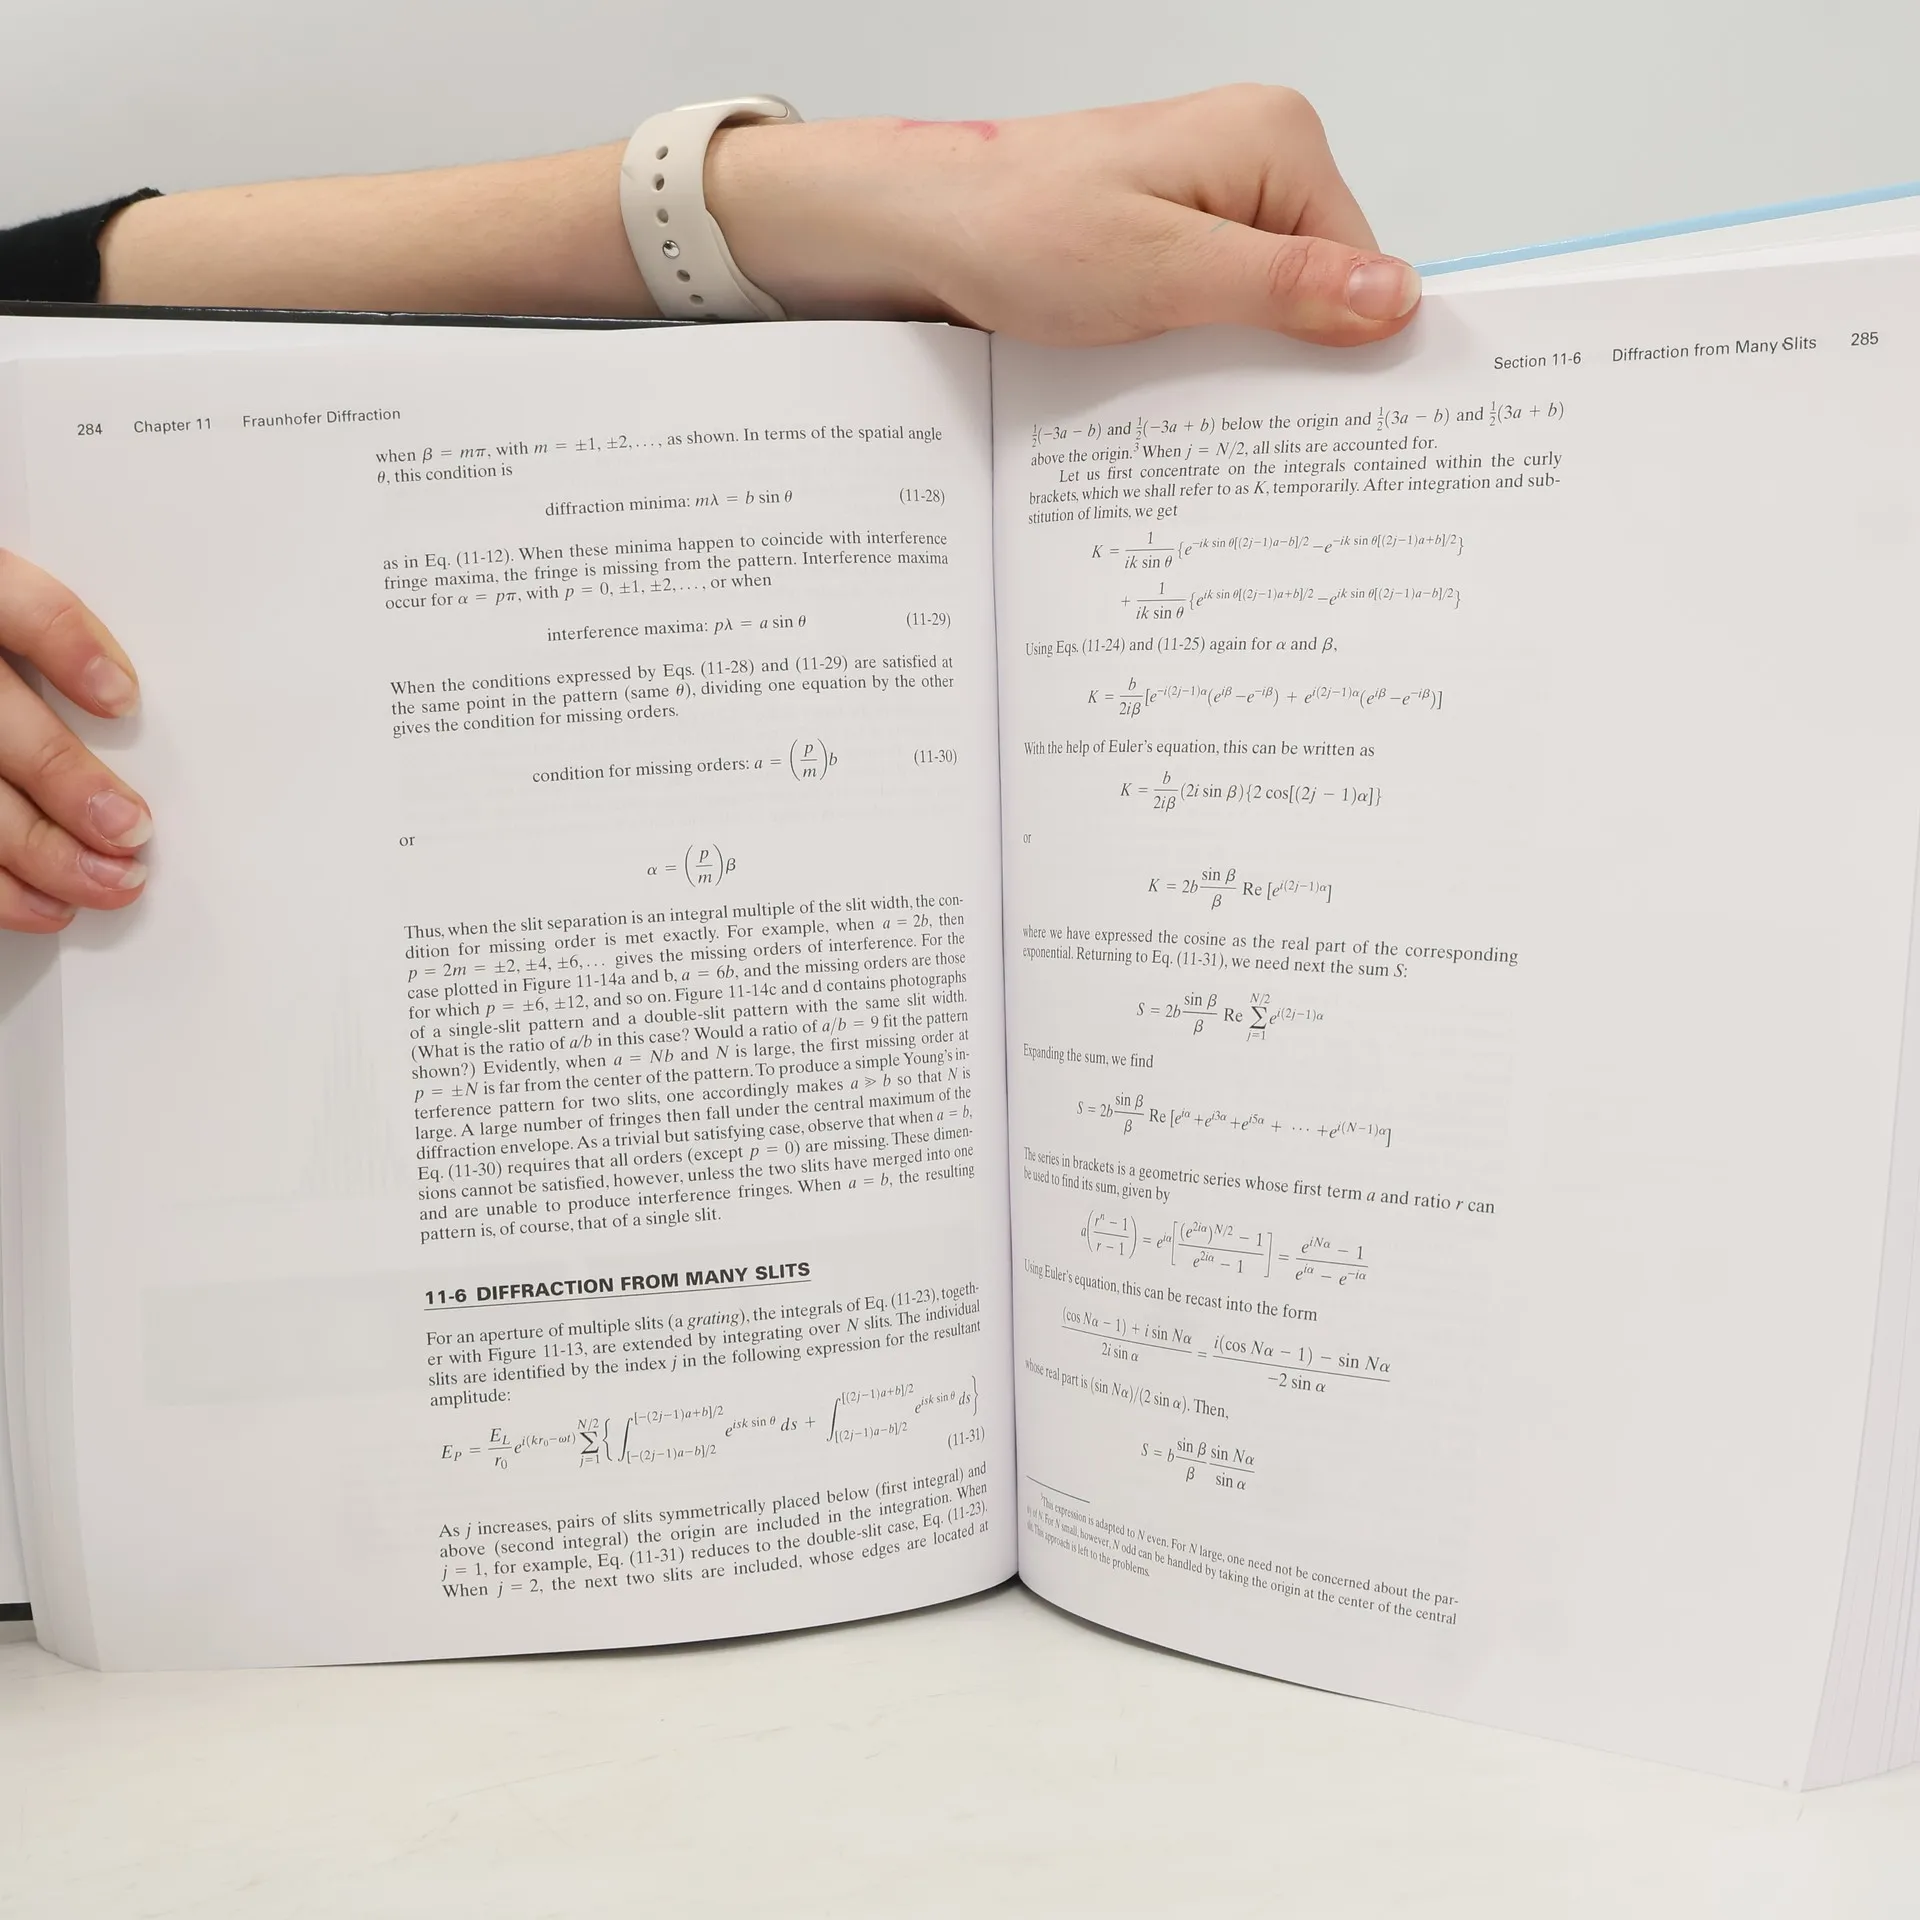 284 Chapter 11 Fraunhofer Diffraction
when β = mπ, with m = ±1, ±2,..., as shown. In terms of the spatial angle
θ, this condition is
diffraction minima: mλ = b sin θ (11-28)
as in Eq. (11-12). When these minima happen to coincide with interference
fringe maxima, the fringe is missing from the pattern. Interference maxima
occur for α = pπ, with p = 0, ±1, ±2,..., or when
interference maxima: pλ = a sin θ (11-29)
When the conditions expressed by Eqs. (11-28) and (11-29) are satisfied at
the same point in the pattern (same θ), dividing one equation by the other
gives the condition for missing orders.
condition for missing orders: a = (p/m)b (11-30)
or
α = (p/m)β
Thus, when the slit separation is an integral multiple of the slit width, the con-
dition for missing order is met exactly. For example, when a = 2b, then
p = 2m = ±2, ±4, ±6,... gives the missing orders of interference. For the
case plotted in Figure 11-14a and b, a = 6b, and the missing orders are those
for which p = ±6, ±12, and so on. Figure 11-14c and d contains photographs
of a single-slit pattern and a double-slit pattern with the same slit width.
(What is the ratio of a/b in this case? Would a ratio of a/b = 9 fit the pattern
shown?) Evidently, when a = Nb and N is large, the first missing order at
p = ±N is far from the center of the pattern. To produce a simple Young's in-
terference pattern for two slits, one accordingly makes a ≫ b so that N is
large. A large number of fringes then fall under the central maximum of the
diffraction envelope. As a trivial but satisfying case, observe that when a = b,
Eq. (11-30) requires that all orders (except p = 0) are missing. These dimen-
sions cannot be satisfied, however, unless the two slits have merged into one
and are unable to produce interference fringes. When a = b, the resulting
pattern is, of course, that of a single slit.
11-6 DIFFRACTION FROM MANY SLITS
For an aperture of multiple slits (a grating), the integrals of Eq. (11-23), togeth-
er with Figure 11-13, are extended by integrating over N slits. The individual
slits are identified by the index j in the following expression for the resultant
amplitude:
E_P = (E_L/r_0) e^{i(kr_0−ωt)} ∑_{j=1}^{N/2} { ∫_{[−(2j−1)a−b]/2}^{[−(2j−1)a+b]/2} e^{isk sin θ} ds + ∫_{[(2j−1)a−b]/2}^{[(2j−1)a+b]/2} e^{isk sin θ} ds }
(11-31)
As j increases, pairs of slits symmetrically placed below (first integral) and
above (second integral) the origin are included in the integration. When
j = 1, for example, Eq. (11-31) reduces to the double-slit case, Eq. (11-23).
When j = 2, the next two slits are included, whose edges are located at
Section 11-6 Diffraction from Many Slits 285
½(−3a − b) and ½(−3a + b) below the origin and ½(3a − b) and ½(3a + b)
above the origin.³ When j = N/2, all slits are accounted for.
Let us first concentrate on the integrals contained within the curly
brackets, which we shall refer to as K, temporarily. After integration and sub-
stitution of limits, we get
K = 1/(ik sin θ) {e^{−ik sin θ[(2j−1)a−b]/2} − e^{−ik sin θ[(2j−1)a+b]/2}}
+ 1/(ik sin θ) {e^{ik sin θ[(2j−1)a+b]/2} − e^{ik sin θ[(2j−1)a−b]/2}}
Using Eqs. (11-24) and (11-25) again for α and β,
K = b/(2iβ) [e^{−i(2j−1)α}(e^{iβ} − e^{−iβ}) + e^{i(2j−1)α}(e^{iβ} − e^{−iβ})]
With the help of Euler's equation, this can be written as
K = b/(2iβ) (2i sin β){2 cos[(2j − 1)α]}
or
K = 2b (sin β)/β Re [e^{i(2j−1)α}]
where we have expressed the cosine as the real part of the corresponding
exponential. Returning to Eq. (11-31), we need next the sum S:
S = 2b (sin β)/β Re ∑_{j=1}^{N/2} e^{i(2j−1)α}
Expanding the sum, we find
S = 2b (sin β)/β Re [e^{iα} + e^{i3α} + e^{i5α} + ··· + e^{i(N−1)α}]
The series in brackets is a geometric series whose first term a and ratio r can
be used to find its sum, given by
a((r^n − 1)/(r − 1)) = e^{iα}[((e^{2iα})^{N/2} − 1)/(e^{2iα} − 1)] = (e^{iNα} − 1)/(e^{iα} − e^{−iα})
Using Euler's equation, this can be recast into the form
((cos Nα − 1) + i sin Nα)/(2i sin α) = (i(cos Nα − 1) − sin Nα)/(−2 sin α)
whose real part is (sin Nα)/(2 sin α). Then,
S = b (sin β)/β (sin Nα)/(sin α)
³This expression is adapted to N even. For N large, one need not be concerned about the par-
ity of N. For N small, however, N odd can be handled by taking the origin at the center of the central
slit. This approach is left to the problems.